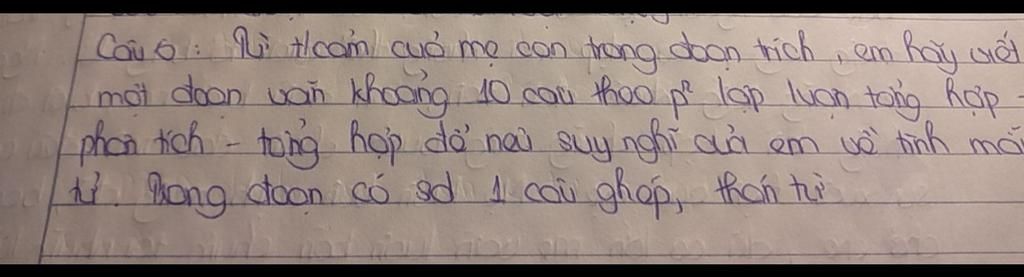 Câu 6: Từ t/cảm của mẹ con trong đoạn trích, em hãy viết
một đoạn văn khoảng 10 câu theo p² lập luận tổng hợp -
phân tích - tổng hợp để nói suy nghĩ của em về tình mẫu
tử. Trong đoạn có sd 1 câu ghép, thán từ